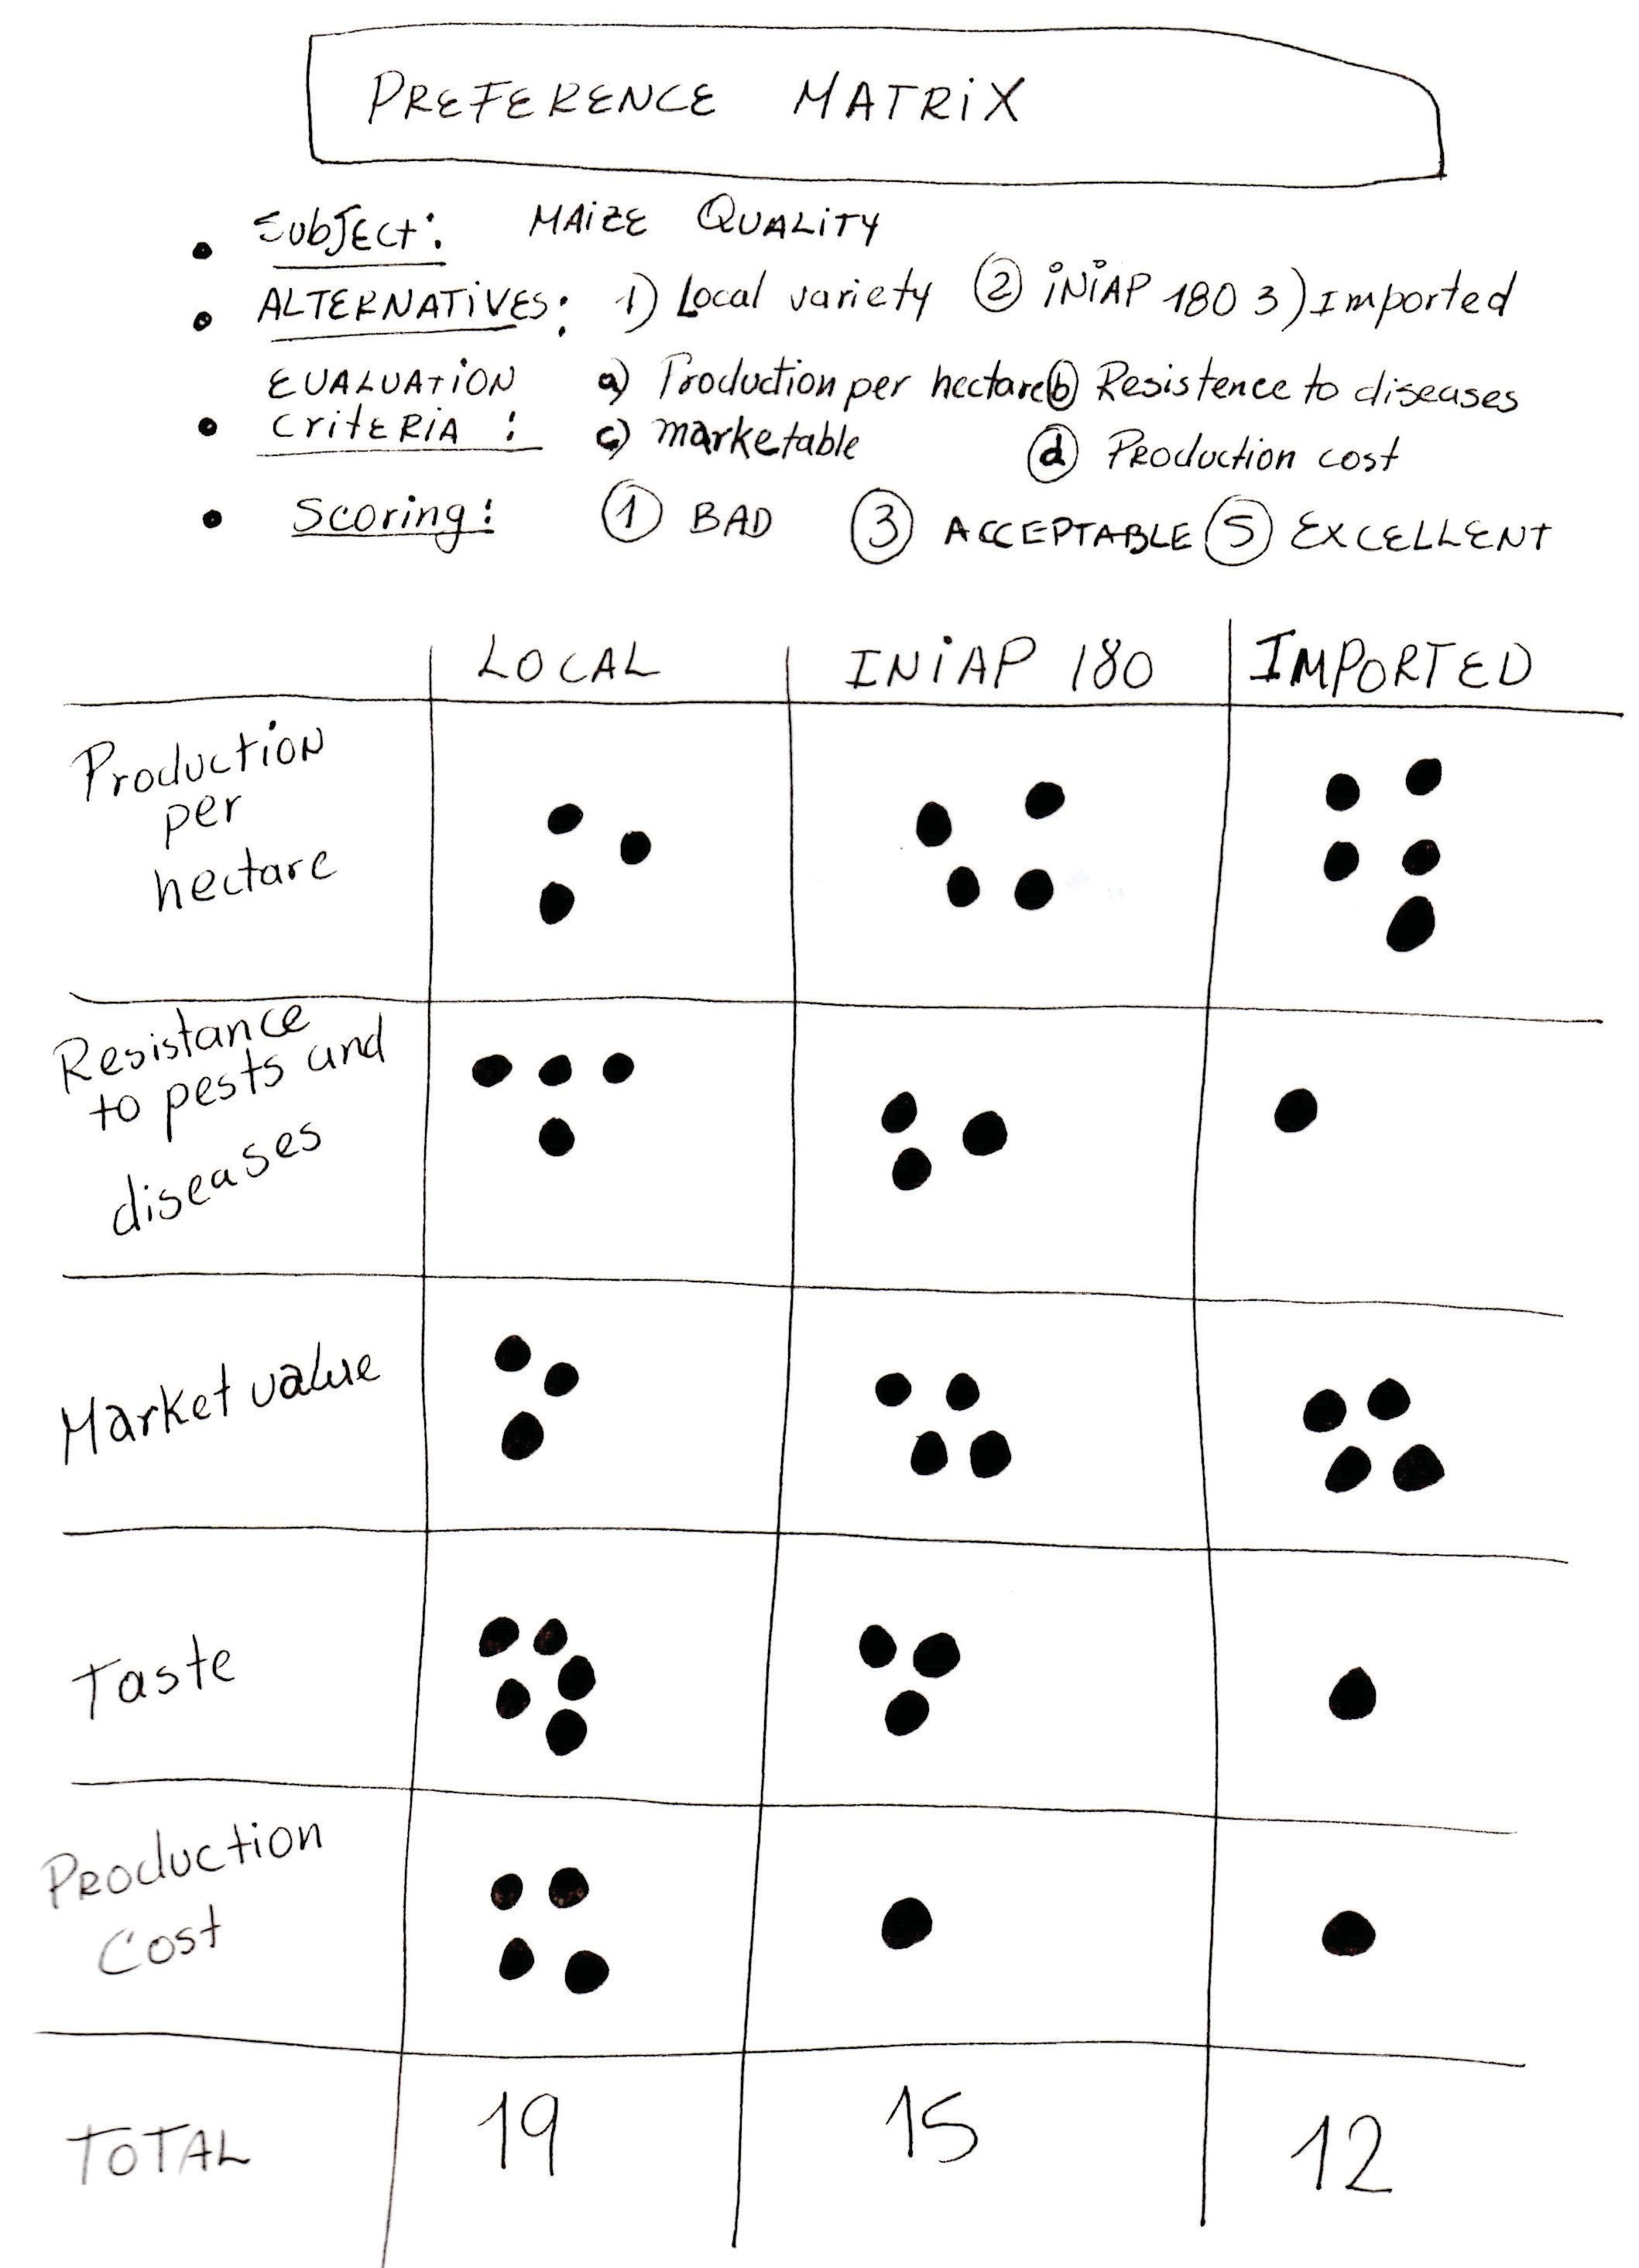 PREFERENCE MATRIX
• SubJEct: MAiZE QUALiTY
• ALTERNATiVES: 1) Local variety ② iNiAP 180 3) Imported
EVALUATiON a) Production per hectare b) Resistence to diseases
• CritERiA : c) marketable d) Production cost
• Scoring: ① BAD ③ ACCEPTABLE ⑤ EXCELLENT
LOCAL INiAP 180 IMPORTED
Production
per
hectare
Resistance
to pests and
diseases
Market value
Taste
Production
Cost
TOTAL 19 15 12